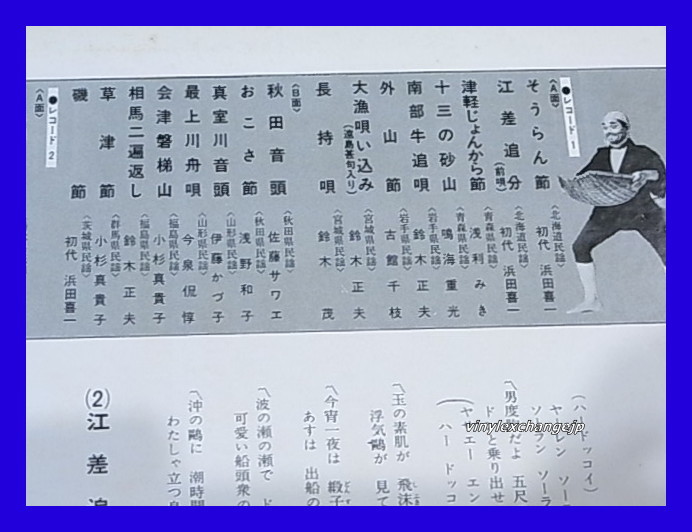 ●レコード 1
〈A面〉
そうらん節〈北海道民謡〉初代 浜田喜一
江差追分(前唄)〈北海道民謡〉初代 浜田喜一
津軽じょんから節〈青森県民謡〉浅利みき
十三の砂山〈青森県民謡〉鳴海重光
南部牛追唄〈岩手県民謡〉鈴木正夫
外山節〈岩手県民謡〉古館千枝
大漁唄い込み(遠島甚句入り)〈宮城県民謡〉鈴木正夫
長持唄〈宮城県民謡〉鈴木茂
〈B面〉
秋田音頭〈秋田県民謡〉佐藤サワエ
おこさ節〈秋田県民謡〉浅野和子
真室川音頭〈山形県民謡〉伊藤かづ子
最上川舟唄〈山形県民謡〉今泉侃惇
会津磐梯山〈福島県民謡〉小杉真貴子
相馬二遍返し〈福島県民謡〉鈴木正夫
草津節〈群馬県民謡〉小杉真貴子
●レコード 2
〈A面〉
磯節〈茨城県民謡〉初代 浜田喜一
(ハ ドッコイ)
ヤーレン ソー
ソーラン ソーラ
〽男度胸だよ 五尺
ドンと乗り出せ
ヤ エー エン
(ハ ドッコ
〽玉の素肌が 飛沫
浮気鷗が 見て
〽今宵一夜は 緞子
あすは 出船の
〽波の瀬の瀬で ド
可愛い船頭衆の
〽沖の鷗に 潮時問
わたしゃ立つ鳥
(2)江差追
vinylexchangejp